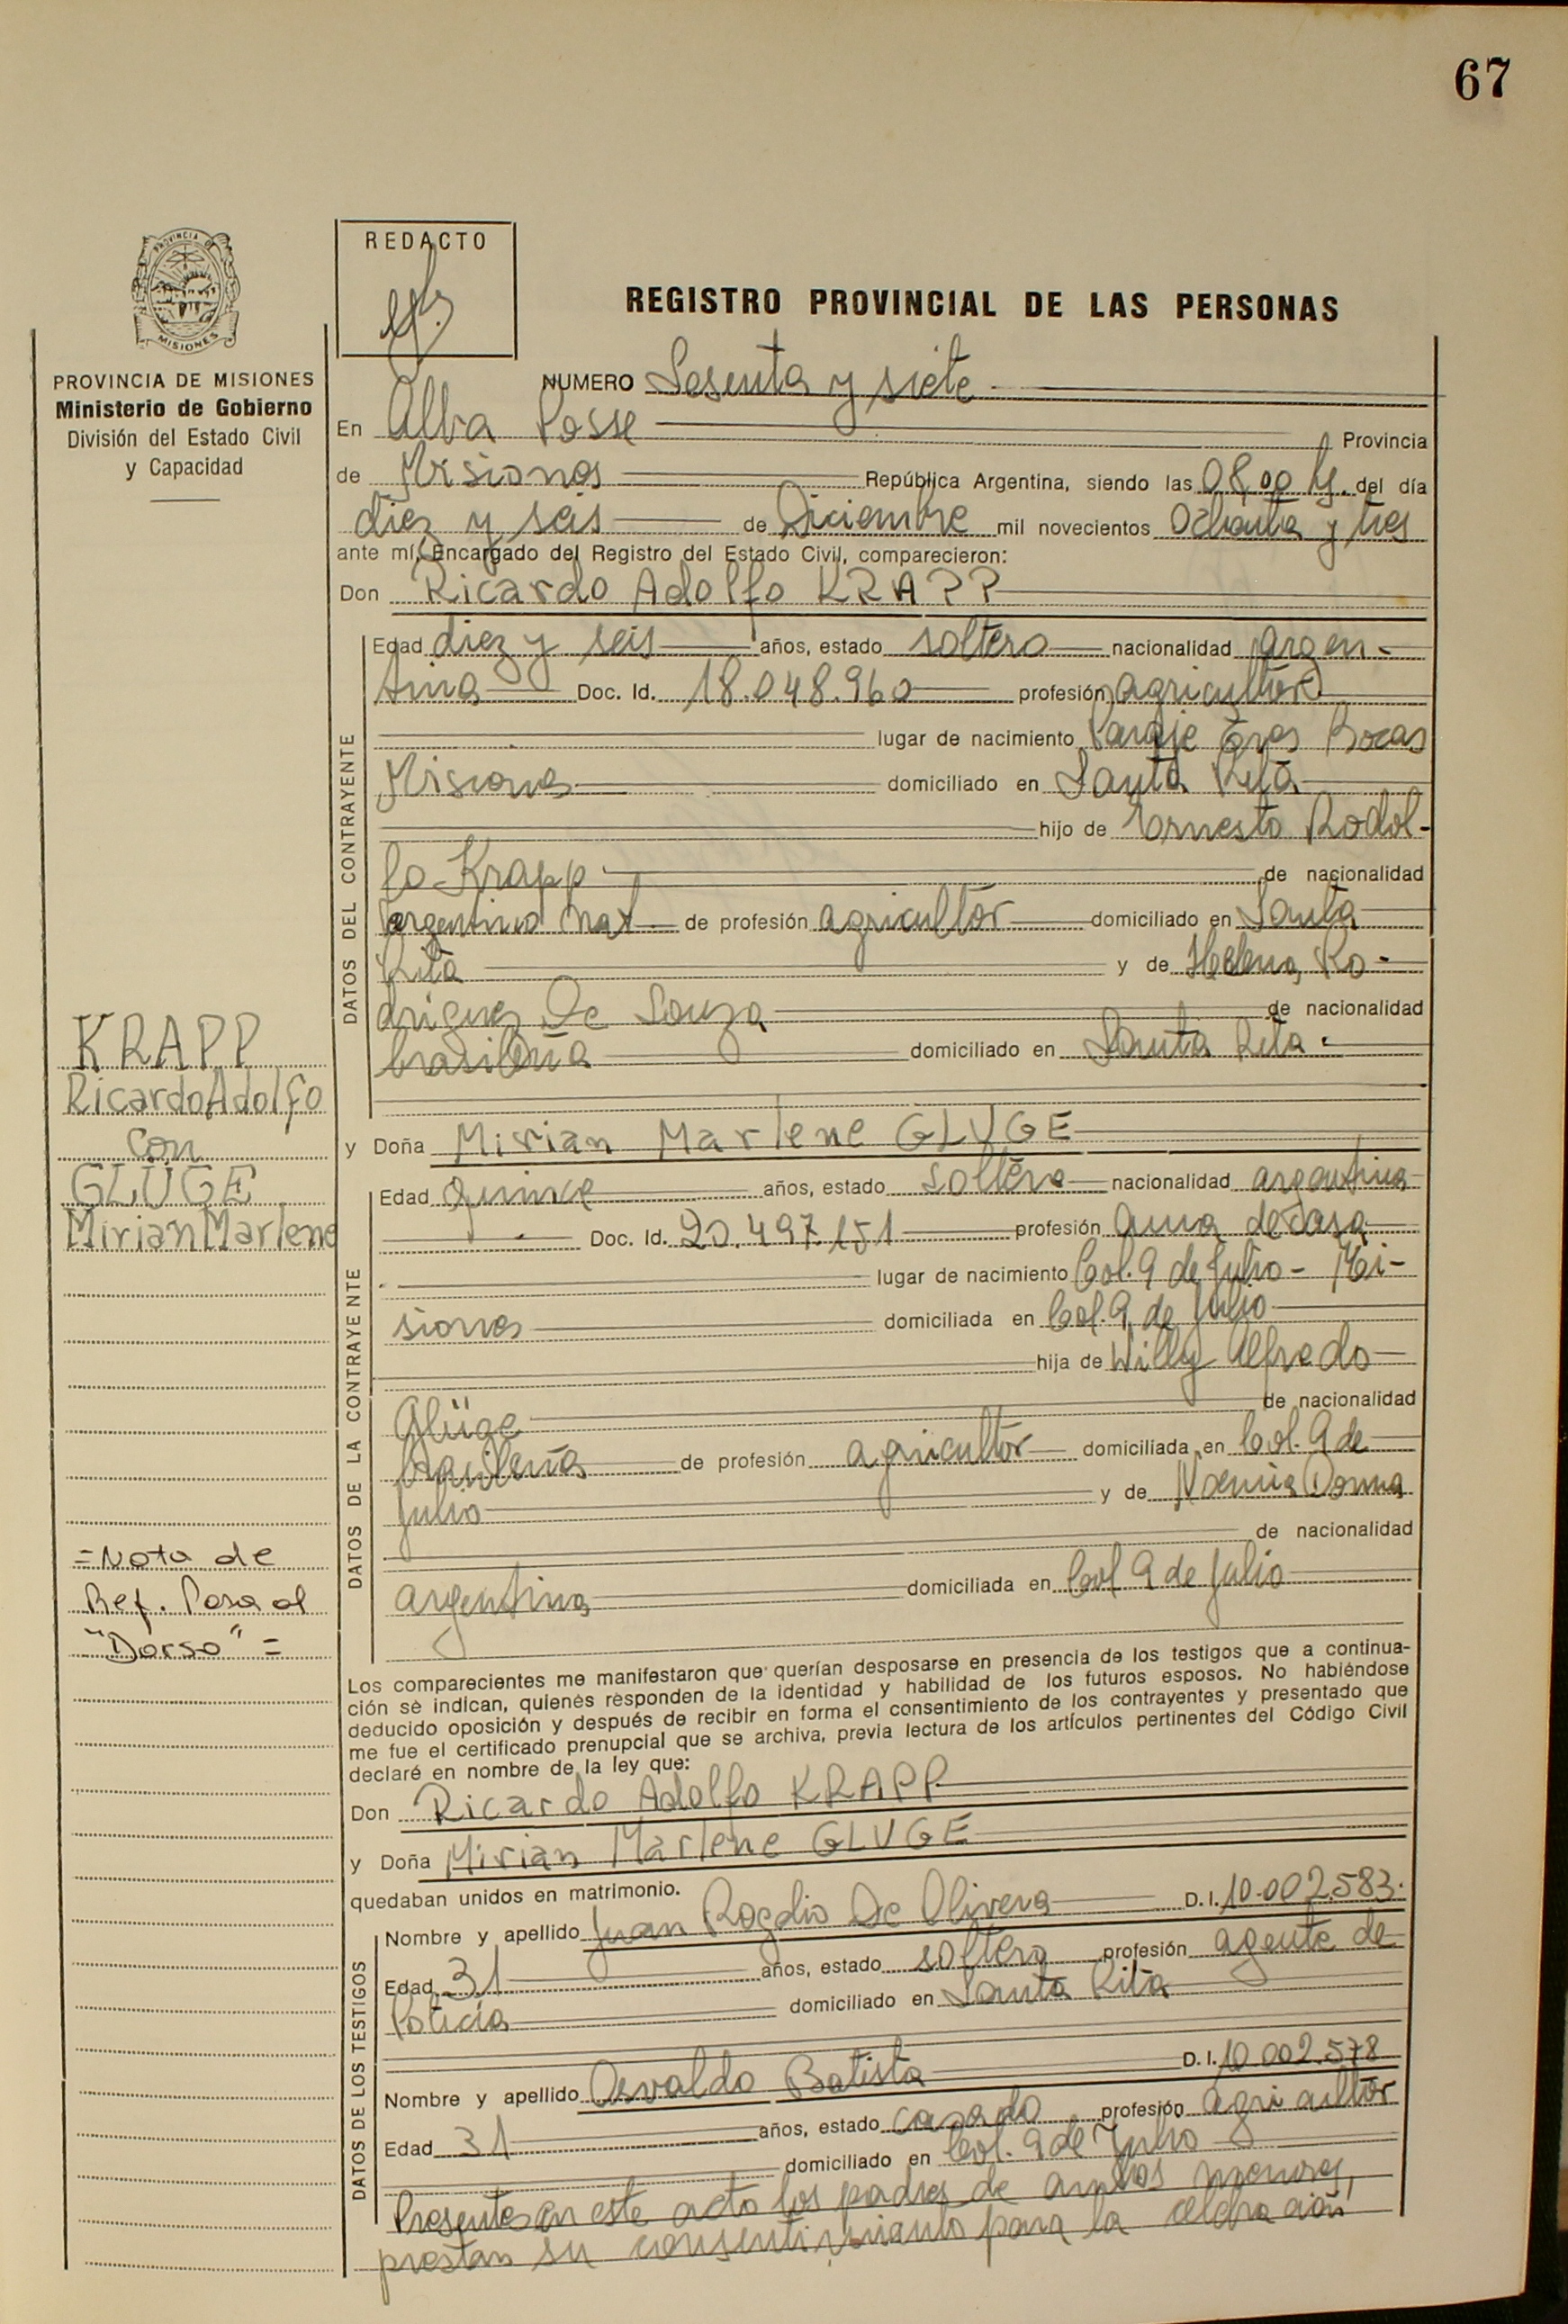 67
REDACTO
PROVINCIA DE MISIONES
Ministerio de Gobierno
División del Estado Civil
y Capacidad
REGISTRO PROVINCIAL DE LAS PERSONAS
NUMERO Sesenta y siete
En Alba Posse Provincia
de Misiones República Argentina, siendo las 08,00 hs. del día
diez y seis de Diciembre mil novecientos Ochenta y tres
ante mí, Encargado del Registro del Estado Civil, comparecieron:
Don Ricardo Adolfo KRAPP
DATOS DEL CONTRAYENTE
Edad diez y seis años, estado soltero nacionalidad argen-
tina Doc. Id. 18.048.960 profesión agricultor
lugar de nacimiento Paraje Tres Bocas
Misiones domiciliado en Santa Rita
hijo de Ernesto Rodol-
fo Krapp de nacionalidad
argentino nat. de profesión agricultor domiciliado en Santa
Rita y de Helena Ro-
driguez De Souza de nacionalidad
brasileña domiciliado en Santa Rita.
KRAPP
Ricardo Adolfo
con
GLÜGE
Mirian Marlene
y Doña Mirian Marlene GLUGE
DATOS DE LA CONTRAYENTE
Edad quince años, estado soltera nacionalidad argentina
Doc. Id. 20.497.151 profesión ama de casa
lugar de nacimiento Col. 9 de Julio - Mi-
siones domiciliada en Col. 9 de Julio
hija de Willy Alfredo
Glüge de nacionalidad
brasileña de profesión agricultor domiciliada en Col. 9 de
Julio y de Noemia Dorna
de nacionalidad
argentina domiciliada en Col 9 de Julio
=Nota de
Ref. Pasa al
"Dorso"=
Los comparecientes me manifestaron que querían desposarse en presencia de los testigos que a continua-
ción se indican, quienes responden de la identidad y habilidad de los futuros esposos. No habiéndose
deducido oposición y después de recibir en forma el consentimiento de los contrayentes y presentado que
me fue el certificado prenupcial que se archiva, previa lectura de los artículos pertinentes del Código Civil
declaré en nombre de la ley que:
Don Ricardo Adolfo KRAPP
y Doña Mirian Marlene GLUGE
quedaban unidos en matrimonio.
DATOS DE LOS TESTIGOS
Nombre y apellido Juan Rogelio De Olivera D. I. 10.002.583.
Edad 31 años, estado soltero profesión agente de
Policía domiciliado en Santa Rita
Nombre y apellido Osvaldo Batista D. I. 10.002.578
Edad 31 años, estado casado profesión agricultor
domiciliado en Col. 9 de Julio
Presentes en este acto los padres de ambos menores,
prestan su consentimiento para la celebración